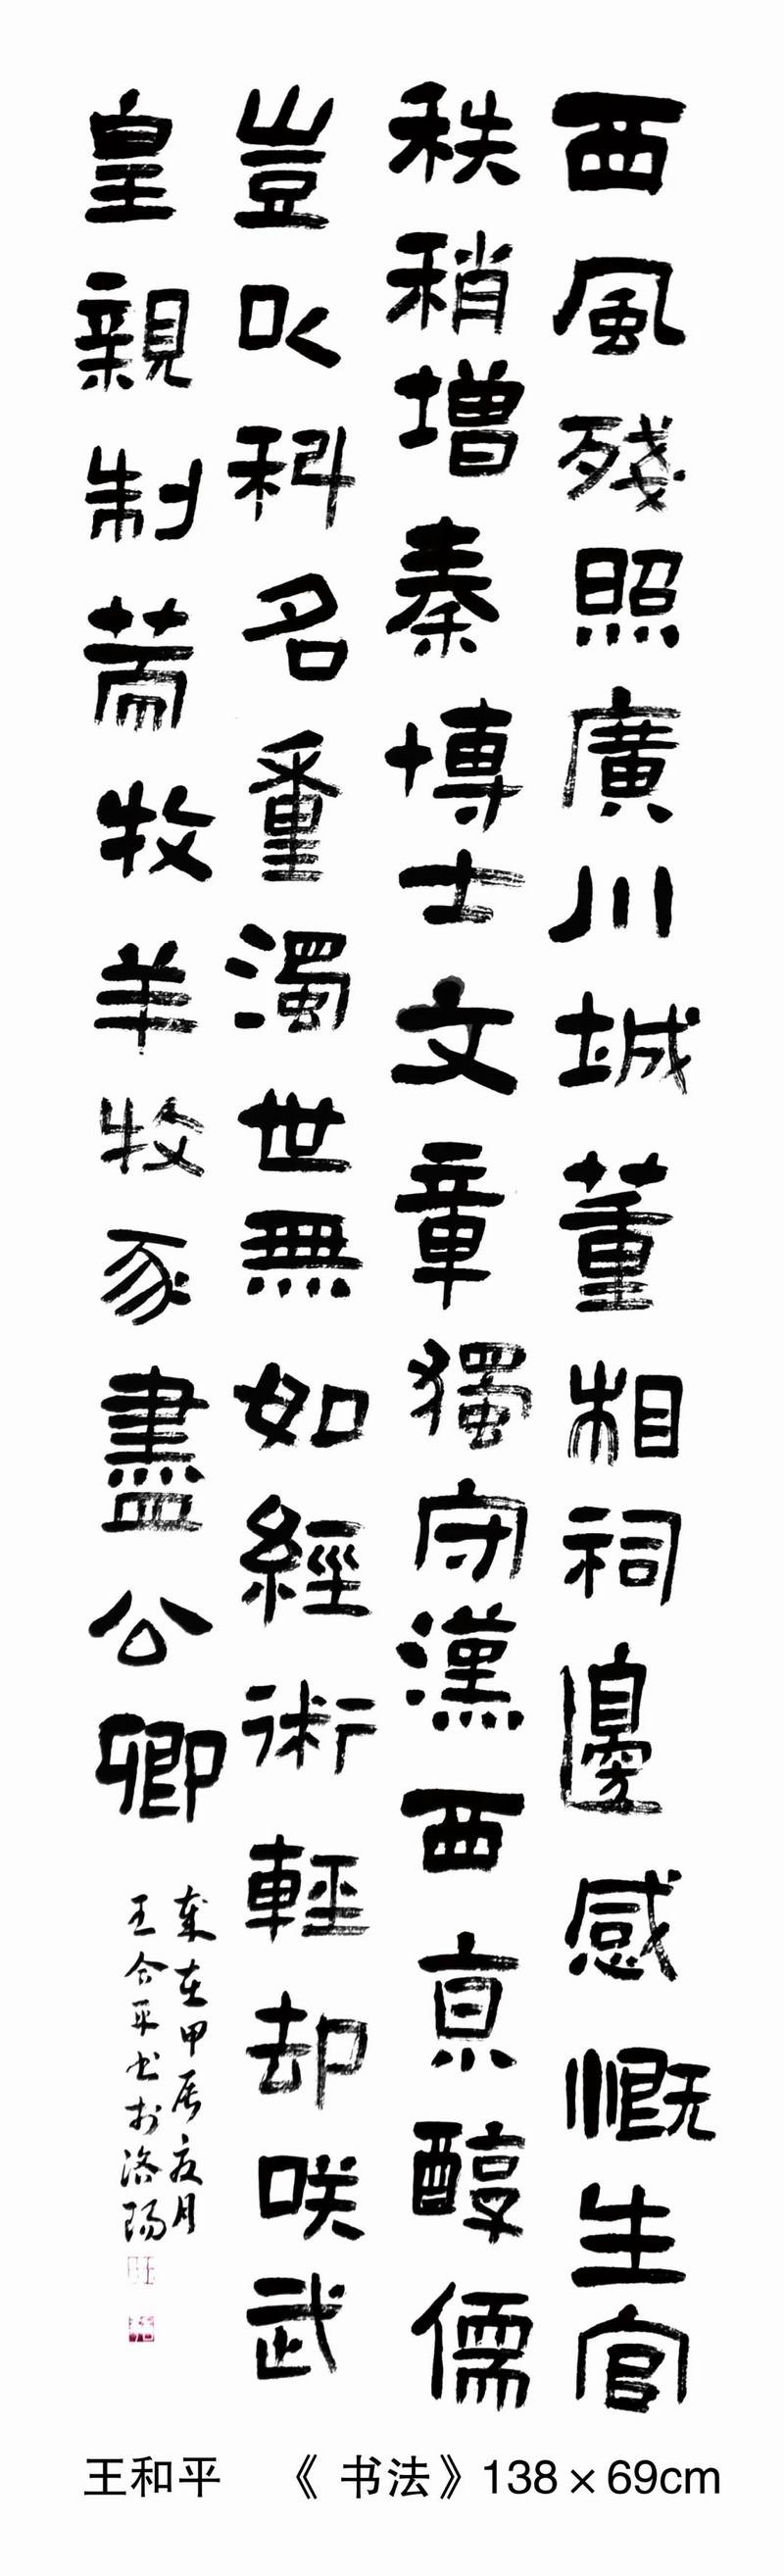 西風殘照廣川城董相祠邊感慨生官
秩稍增秦博士文章獨守漢西亰醇儒
豈以科名重濁世無如經術輕却咲武
皇親制策牧羊牧豕盡公卿
歲在甲辰夏月
王和平书於洛陽
王和平 《 书法》138×69cm